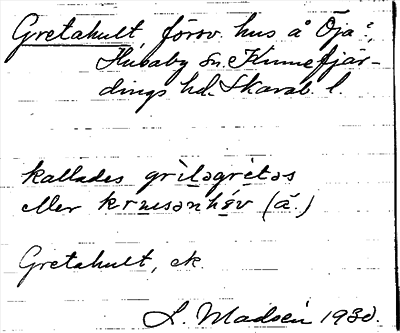 Gretahult försv. hus å Öja,
Husaby sn. Kinnefjär-
dings hd. Skarab. l.
kallades grilagretas
eller (ä.)
Gretahult, ek.
L. Madsén 1930.